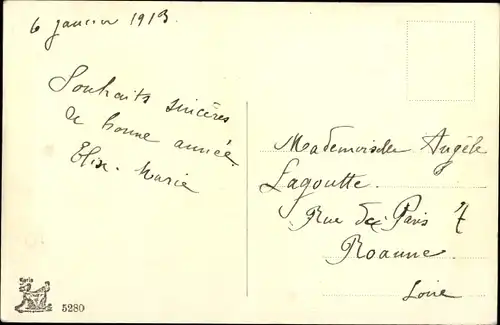 6 janvier 1913
Souhaits sincères
de bonne année
Elix-Marie
Mademoiselle Angèle
Lagoutte.
Rue de Paris 7
Roanne.
Loire
Paris
5280